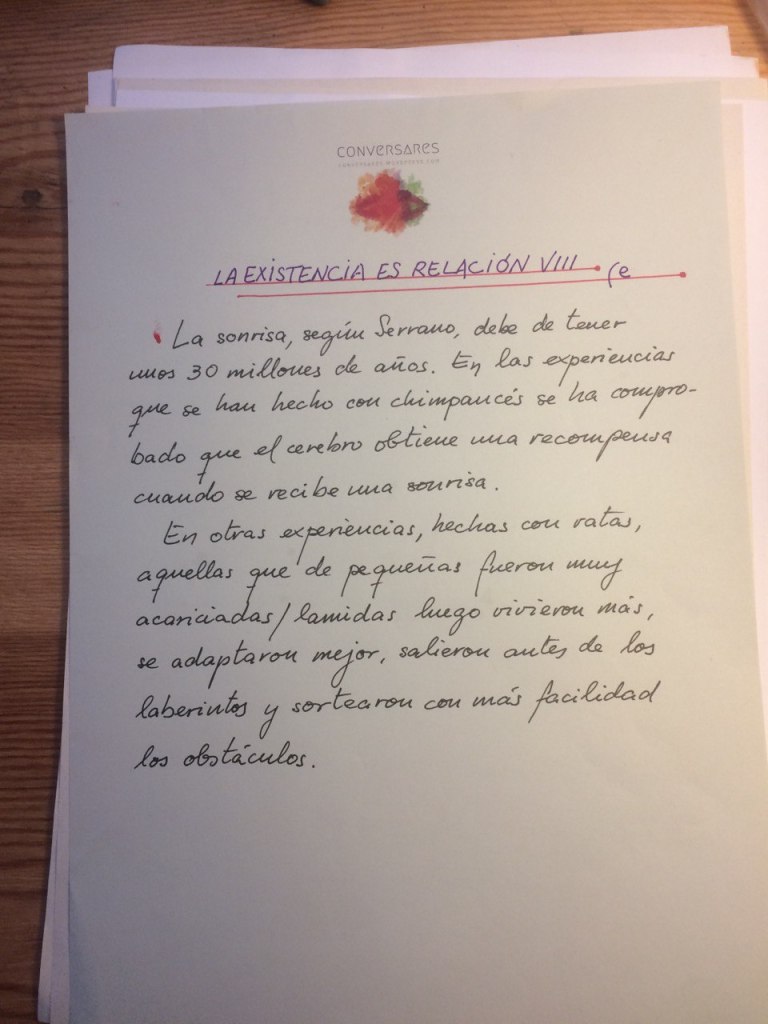 CONVERSARES
CONVERSARES.WORDPRESS.COM
LA EXISTENCIA ES RELACIÓN VIII (e
La sonrisa, según Serrano, debe de tener
unos 30 millones de años. En las experiencias
que se han hecho con chimpancés se ha compro-
bado que el cerebro obtiene una recompensa
cuando se recibe una sonrisa.
En otras experiencias, hechas con ratas,
aquellas que de pequeñas fueron muy
acariciadas/lamidas luego vivieron más,
se adaptaron mejor, salieron antes de los
laberintos y sortearon con más facilidad
los obstáculos.